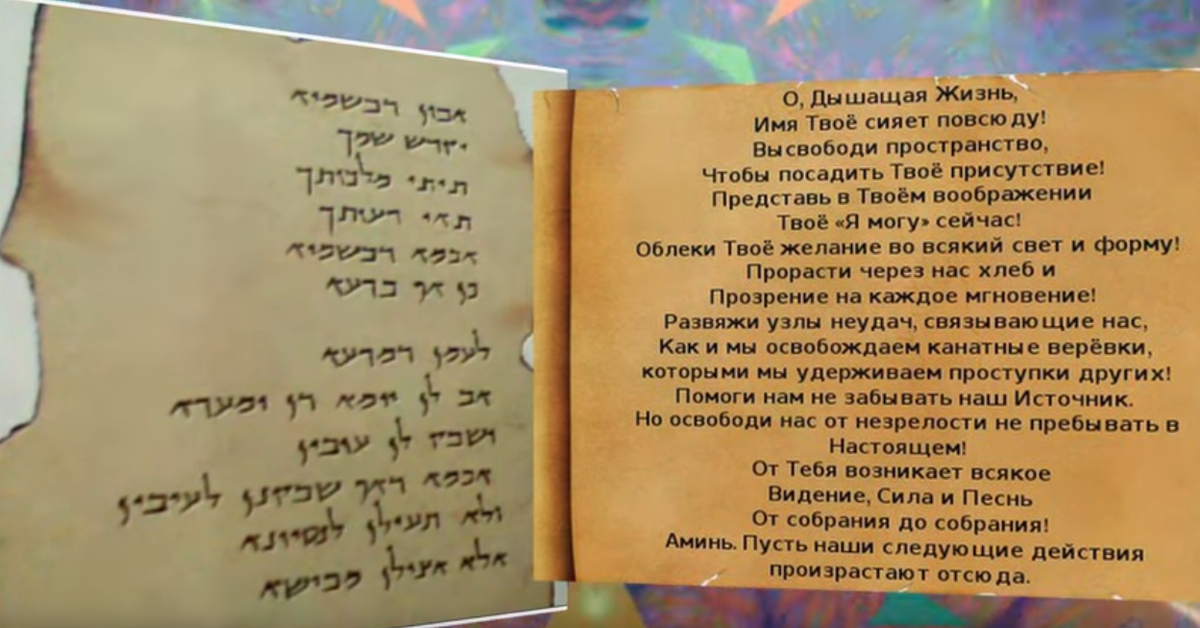 אבון דבשמיא
יקדש שמך
תיתי מלכותך
תאי רעותך
אכמא דבשמיא
כן אף ברעא
לעמן דמרעא
אב לן יומא דן ומערא
ושבק לן עובין
אכמא דאף שבקנן לעיבין
ולא תעילן לנסיונא
אלא אצילן מבישא
О, Дышащая Жизнь,
Имя Твоё сияет повсюду!
Высвободи пространство,
Чтобы посадить Твоё присутствие!
Представь в Твоём воображении
Твоё «Я могу» сейчас!
Облеки Твоё желание во всякий свет и форму!
Прорасти через нас хлеб и
Прозрение на каждое мгновение!
Развяжи узлы неудач, связывающие нас,
Как и мы освобождаем канатные верёвки,
которыми мы удерживаем проступки других!
Помоги нам не забывать наш Источник.
Но освободи нас от незрелости не пребывать в
Настоящем!
От Тебя возникает всякое
Видение, Сила и Песнь
От собрания до собрания!
Аминь. Пусть наши следующие действия
произрастают отсюда.